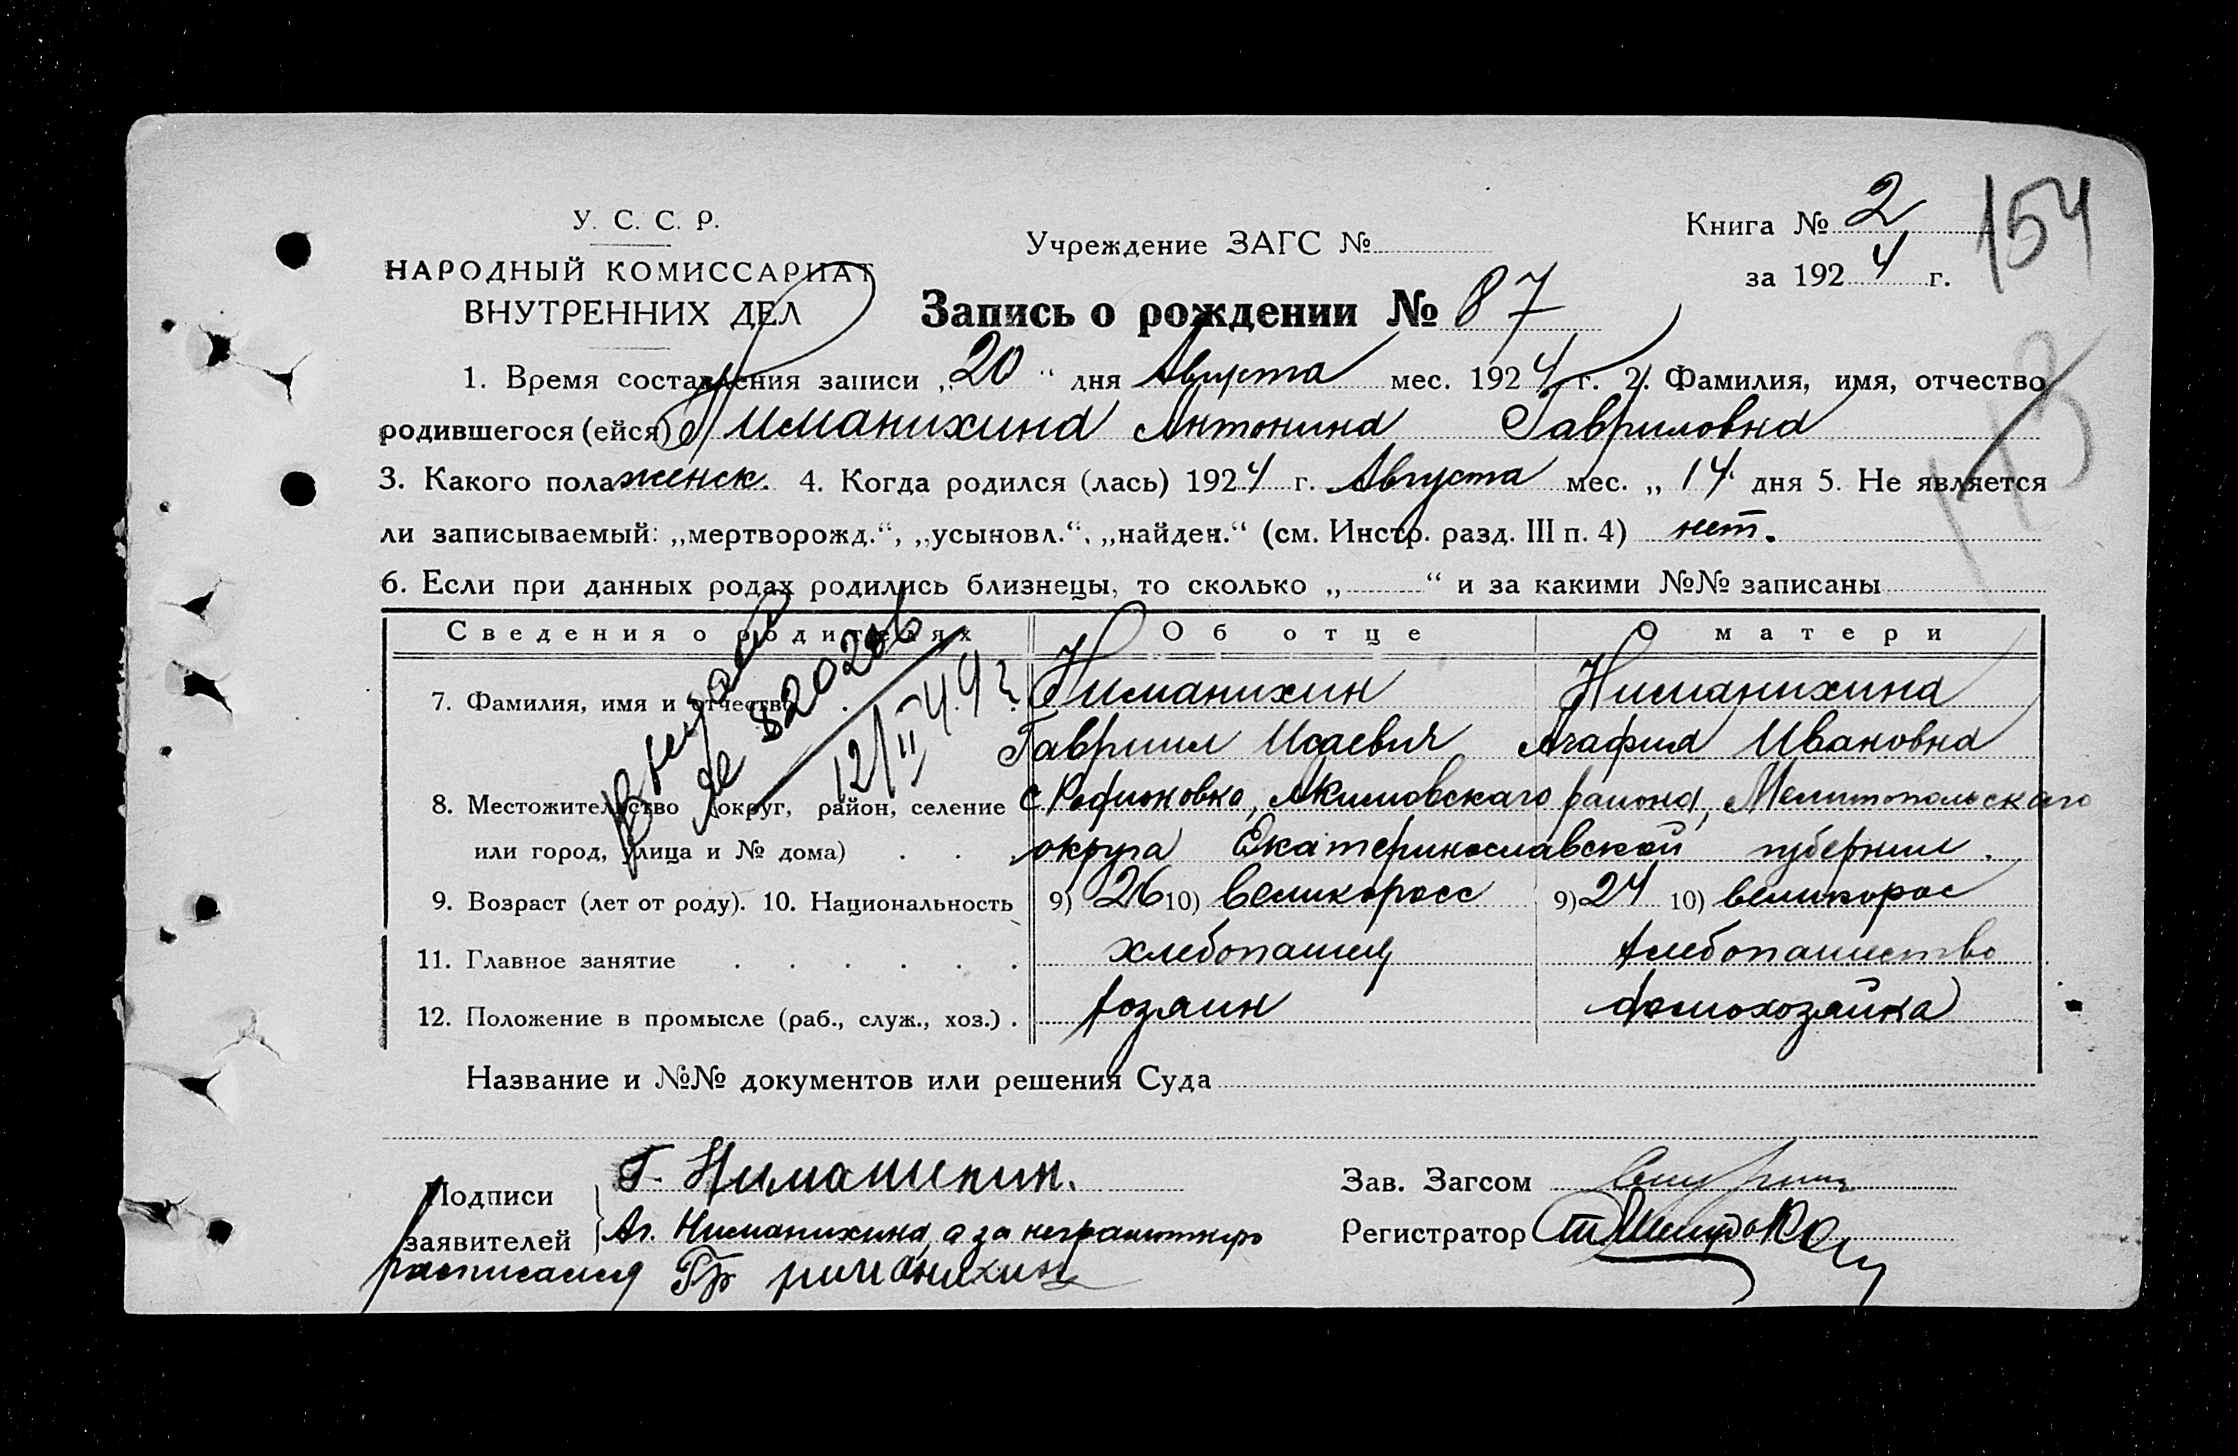 У. С. С. Р.
НАРОДНЫЙ КОМИССАРИАТ
ВНУТРЕННИХ ДЕЛ
Учреждение ЗАГС №
Книга № 2
за 1924 г.
154
173
Запись о рождении № 87
1. Время составления записи „20“ дня Августа мес. 1924 г. 2. Фамилия, имя, отчество
родившегося (ейся) Ниманихина Антонина Гавриловна
3. Какого пола женск. 4. Когда родился (лась) 1924 г. Августа мес. „14 дня 5. Не является
ли записываемый: „мертворожд.“, „усыновл.“, „найден.“ (см. Инстр. разд. III п. 4) нет.
6. Если при данных родах родились близнецы, то сколько „ “ и за какими №№ записаны
Сведения о родителях Об отце О матери
7. Фамилия, имя и отчество Ниманихин Ниманихина
Гавриил Исаевич Агафия Ивановна
8. Местожительство (округ, район, селение с Родионовка, Акимовскаго района, Мелитопольскаго
или город, улица и № дома) округа Екатеринославской губернии.
9. Возраст (лет от роду). 10. Национальность 9) 26 10) великоросс 9) 24 10) великорос
11. Главное занятие хлебопашец хлебопашество
12. Положение в промысле (раб., служ., хоз.) хозяин домохозяйка
12/II 49 г.
Название и №№ документов или решения Суда
Подписи Г. Ниманихин.
заявителей Аг. Ниманихина, а за неграмотную
расписался Гр
Зав. Загсом
Регистратор